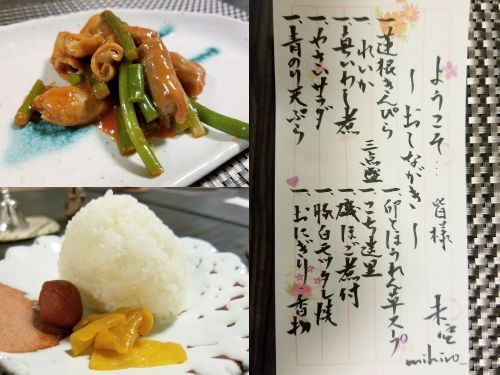 ようこそ… 皆様
〜おしながき〜
一、蓮根きんぴら
一、れいか
一、真いわし煮
三点盛
一、やさいサラダ
一、青のり天ぷら
一、卵とほうれん草スープ
一、こち造里
一、磯はご煮付
一、豚白モツタレ焼
一、おにぎり 香物
未空
mihiro_